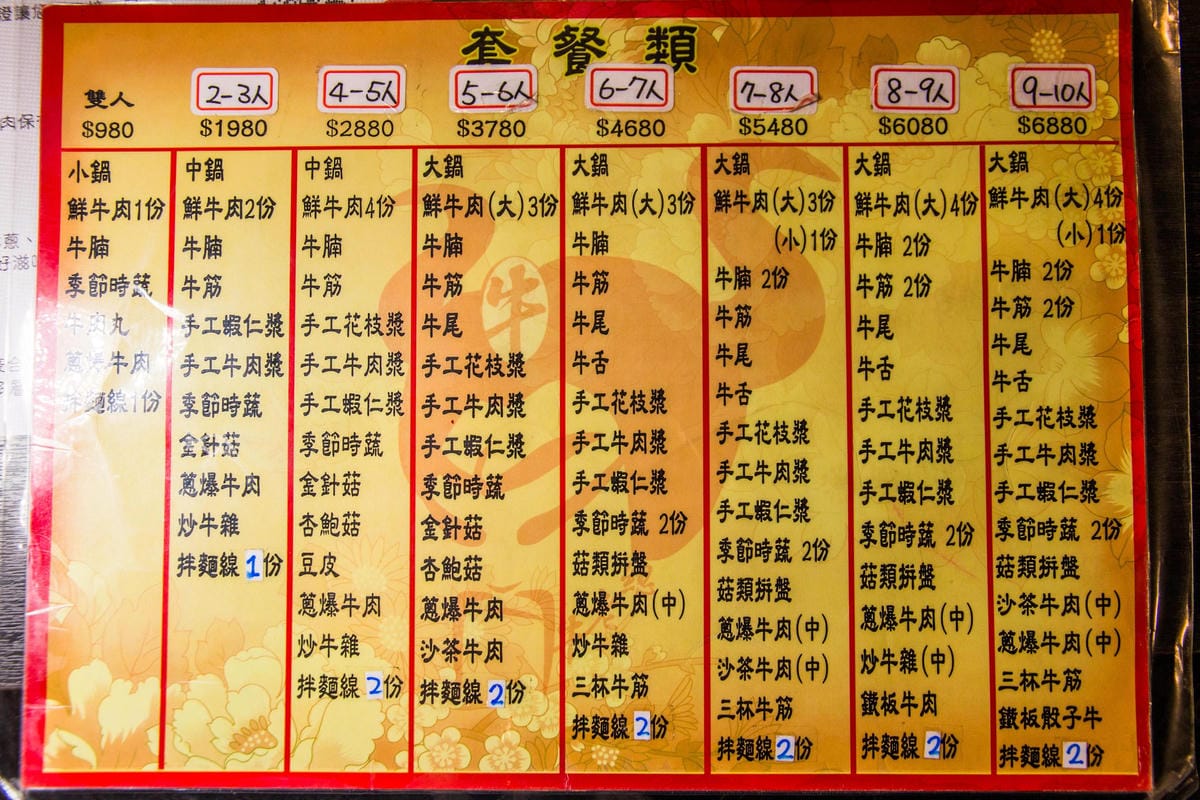 套餐類
雙人
$980
小鍋
鮮牛肉1份
牛腩
季節時蔬
牛肉丸
蔥爆牛肉
拌麵線1份
2-3人
$1980
中鍋
鮮牛肉2份
牛腩
牛筋
手工蝦仁漿
手工牛肉漿
季節時蔬
金針菇
蔥爆牛肉
炒牛雜
拌麵線1份
4-5人
$2880
中鍋
鮮牛肉4份
牛腩
牛筋
手工花枝漿
手工牛肉漿
手工蝦仁漿
季節時蔬
金針菇
杏鮑菇
豆皮
蔥爆牛肉
炒牛雜
拌麵線2份
5-6人
$3780
大鍋
鮮牛肉(大)3份
牛腩
牛筋
牛尾
手工花枝漿
手工牛肉漿
手工蝦仁漿
季節時蔬
金針菇
杏鮑菇
蔥爆牛肉
沙茶牛肉
拌麵線2份
6-7人
$4680
大鍋
鮮牛肉(大)3份
牛腩
牛筋
牛尾
牛舌
手工花枝漿
手工牛肉漿
手工蝦仁漿
季節時蔬 2份
菇類拼盤
蔥爆牛肉(中)
炒牛雜
三杯牛筋
拌麵線2份
7-8人
$5480
大鍋
鮮牛肉(大)3份
(小)1份
牛腩 2份
牛筋
牛尾
牛舌
手工花枝漿
手工牛肉漿
手工蝦仁漿
季節時蔬 2份
菇類拼盤
蔥爆牛肉(中)
沙茶牛肉(中)
三杯牛筋
拌麵線2份
8-9人
$6080
大鍋
鮮牛肉(大)4份
牛腩 2份
牛筋 2份
牛尾
牛舌
手工花枝漿
手工牛肉漿
手工蝦仁漿
季節時蔬 2份
菇類拼盤
蔥爆牛肉(中)
炒牛雜(中)
鐵板牛肉
拌麵線2份
9-10人
$6880
大鍋
鮮牛肉(大)4份
(小)1份
牛腩 2份
牛筋 2份
牛尾
牛舌
手工花枝漿
手工牛肉漿
手工蝦仁漿
季節時蔬 2份
菇類拼盤
沙茶牛肉(中)
蔥爆牛肉(中)
三杯牛筋
鐵板骰子牛
拌麵線2份
牛